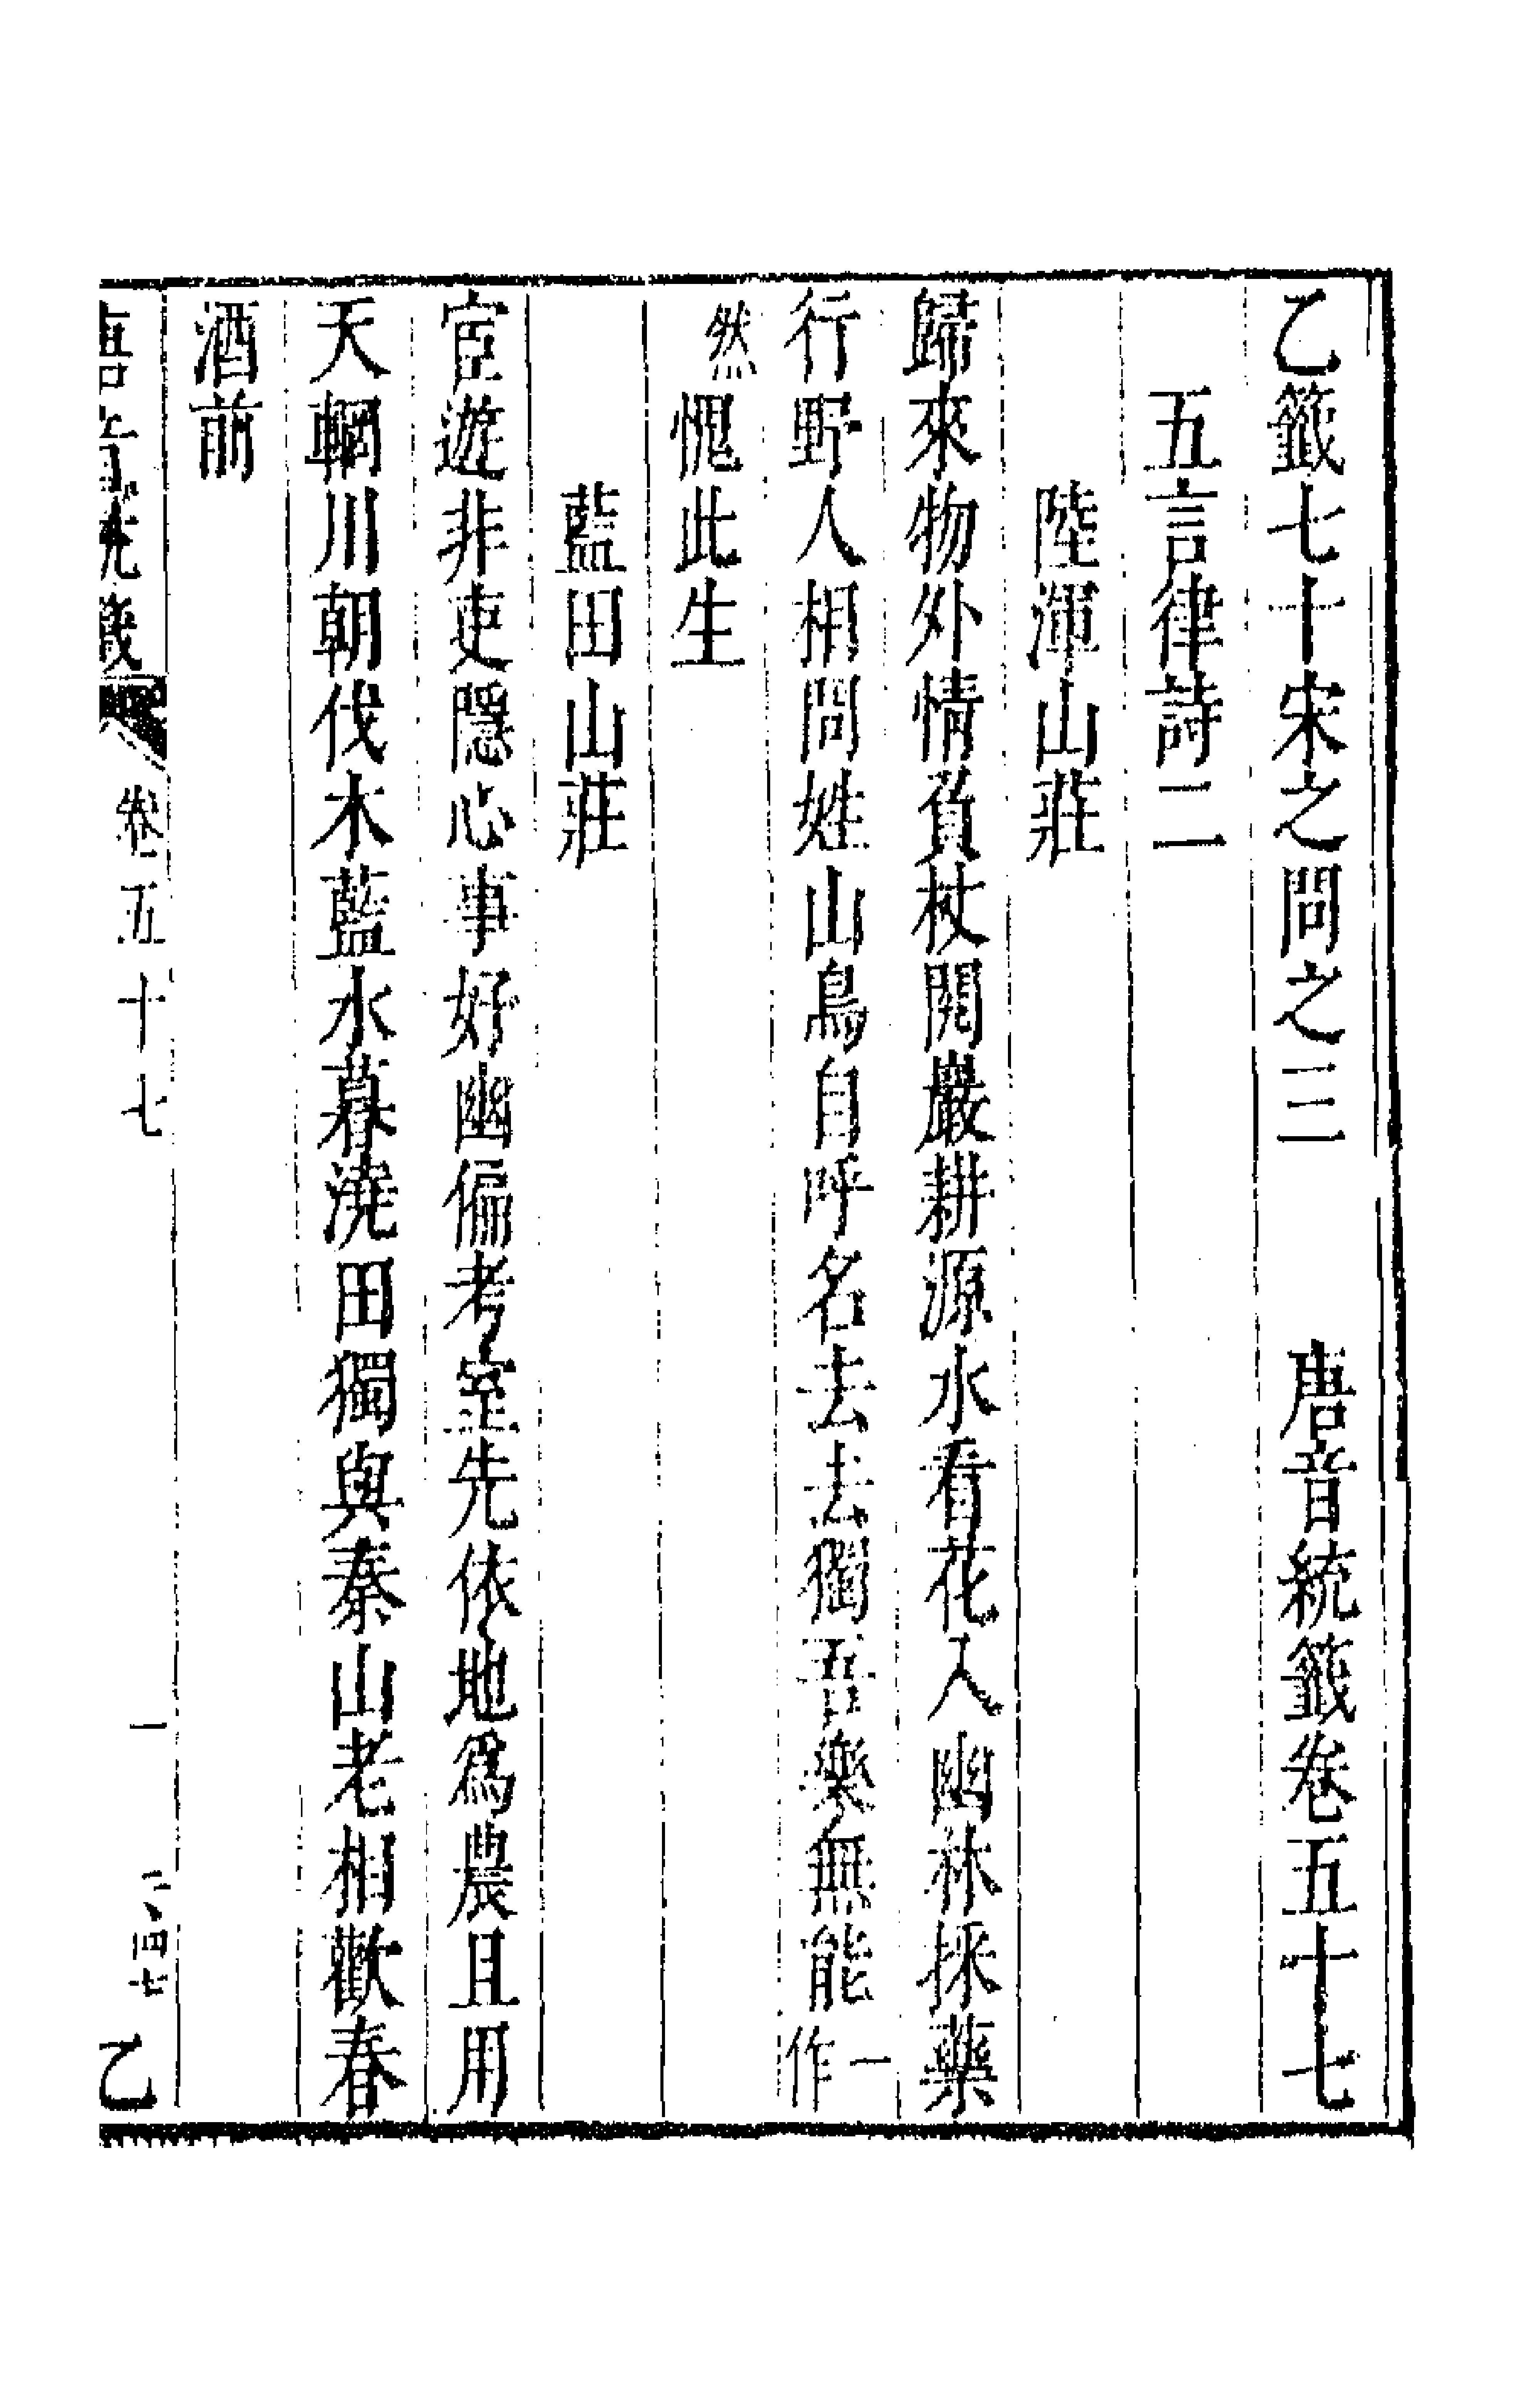 乙籤七十宋之問之三　唐音統籤卷五十七
五言律詩二
陸渾山莊
歸來物外情負杖閱巖耕源水看花入幽林採藥
行野人相問姓山鳥自呼名去去獨吾樂無能一作
然愧此生
藍田山莊
宦遊非吏隱心事好幽偏考室先依地爲農且用
天輞川朝伐木藍水暮澆田獨與秦山老相歡春
酒前
唐音統籤　卷五十七　一　乙